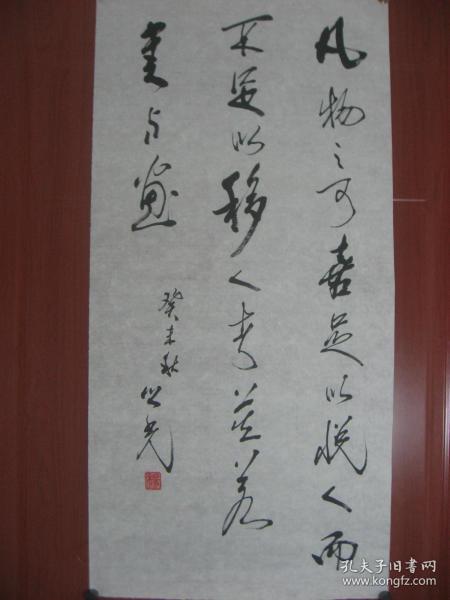 凡物之可喜足以悦人而
不足以移人者莫若
书与画
癸未秋
孔夫子旧书网
www.kongfz.com